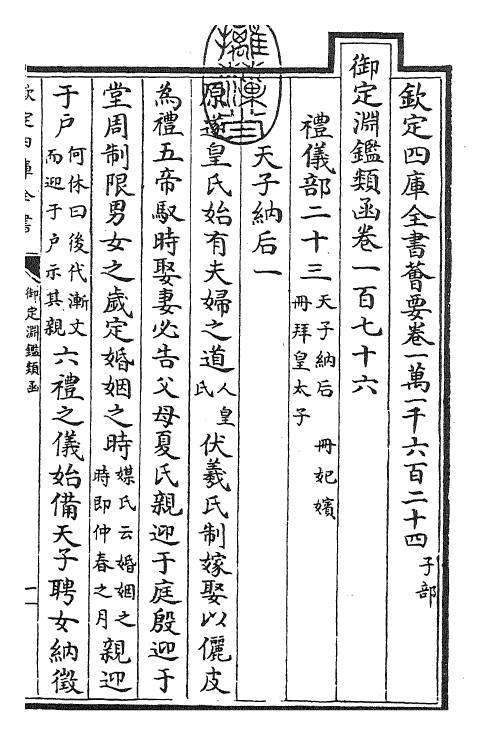 欽定四庫全書薈要卷一萬一千六百二十四 子部
御定淵鑑類函卷一百七十六
禮儀部二十三 天子納后 冊妃嬪 冊拜皇太子
天子納后一
原遂皇氏始有夫婦之道 人皇氏 伏羲氏制嫁娶以儷皮
為禮五帝馭時娶妻必告父母夏氏親迎于庭殷迎于
堂周制限男女之歲定婚姻之時 媒氏云婚姻之時即仲春之月 親迎
于戶 何休曰後代漸文而迎于戶示其親 六禮之儀始備天子聘女納徵
欽定四庫全書
御定淵鑑類函
一